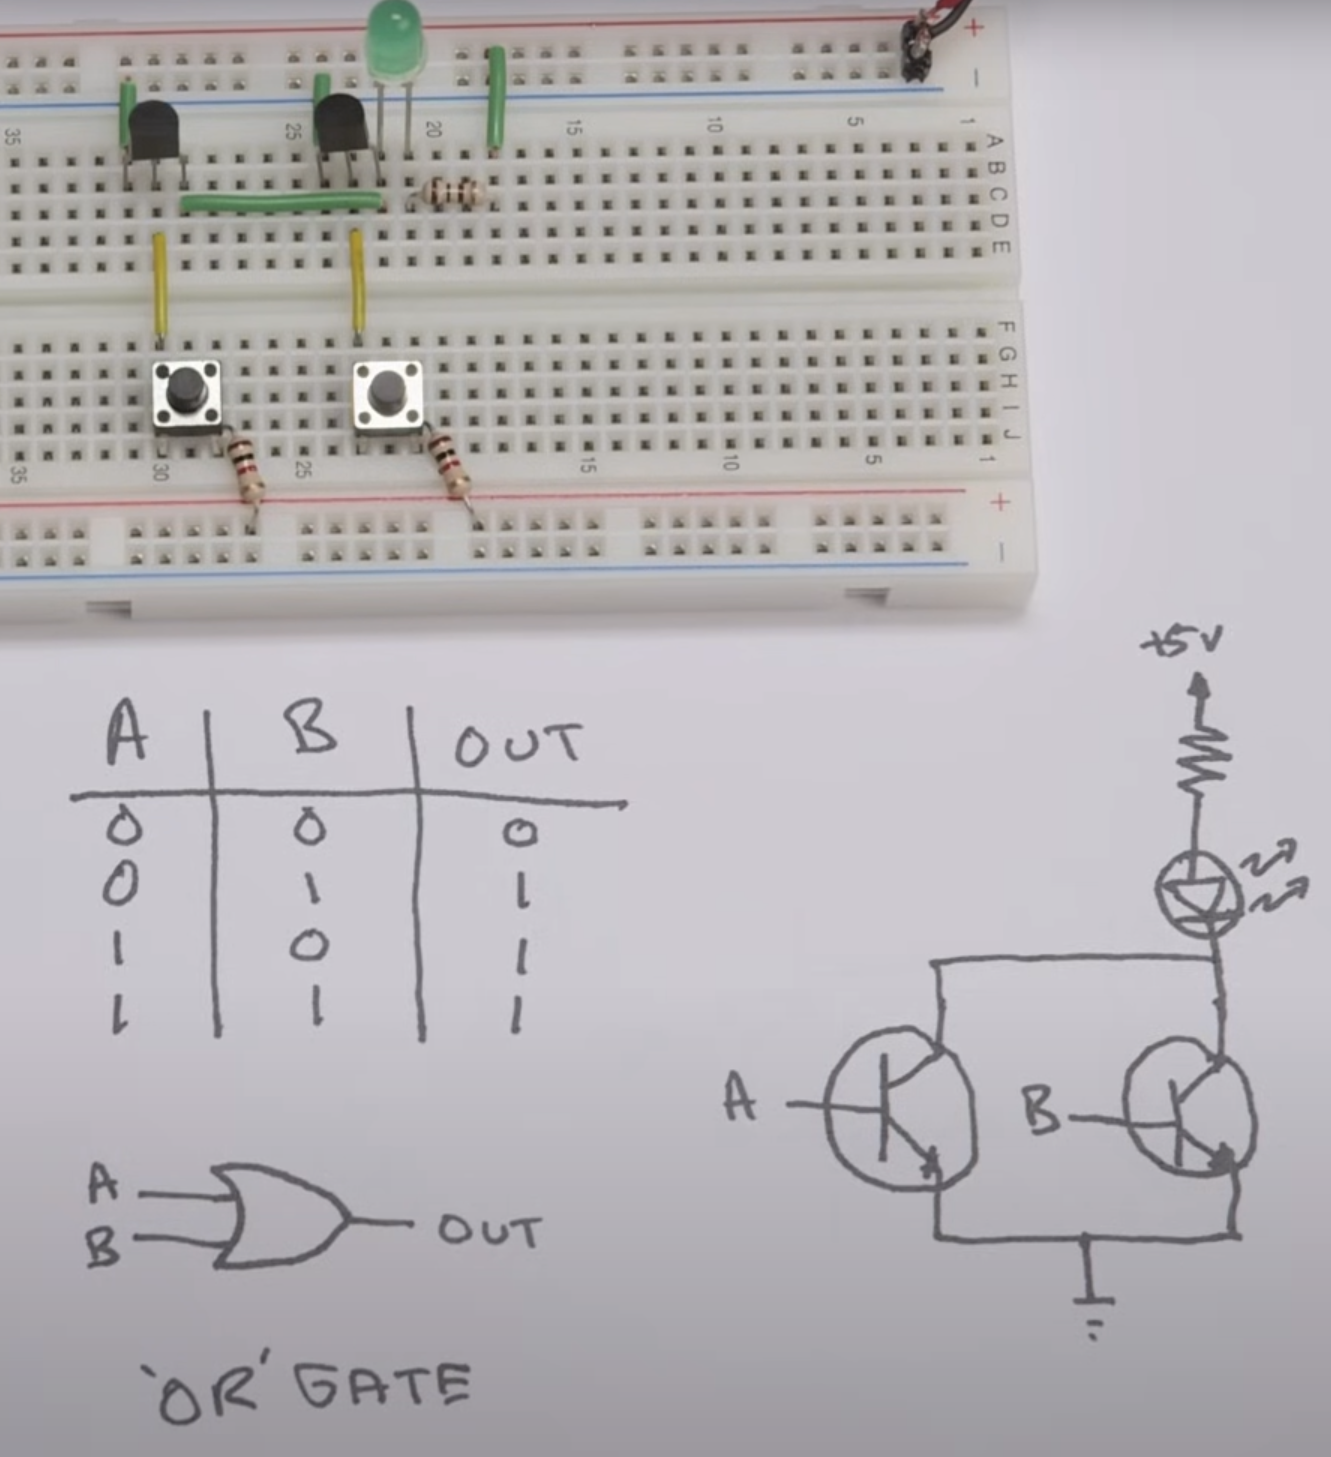 +
−
35
25
20
15
10
5
1
A
B
C
D
E
F
G
H
I
J
35
30
25
15
10
5
1
+
−
+5V
A B OUT
0 0 0
0 1 1
1 0 1
1 1 1
A
B
A
B
OUT
'OR' GATE